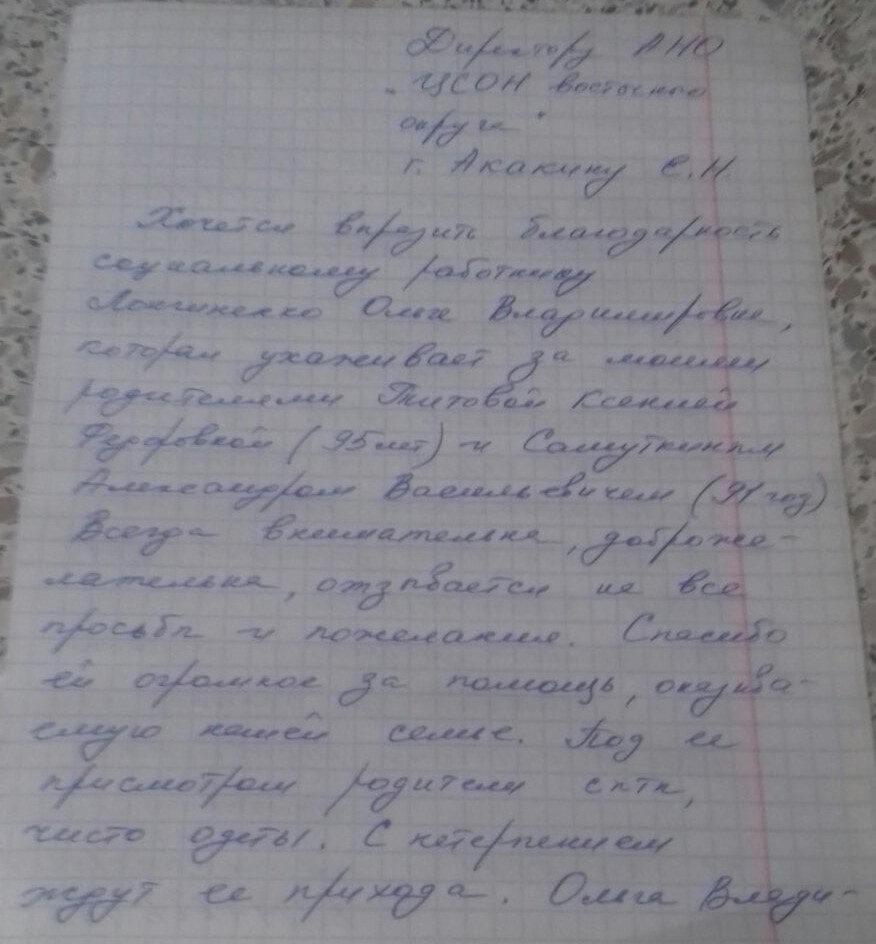 Директору АНО
"ЦСОН восточного
округа"
г. Акакину С.Н.
Хочется выразить благодарность
социальному работнику
Логиненко Ольге Владимировне,
которая ухаживает за моими
родителями Титовой Ксенией
(95 лет) и Самуткиным
Александром Васильевичем (91 год)
Всегда внимательна, доброже-
лательна, отзывается на все
просьбы и пожелания. Спасибо
ей огромное за помощь, оказыва-
емую нашей семье. Под ее
присмотром родители сыты,
чисто одеты. С нетерпением
ждут ее прихода. Ольга Влади-